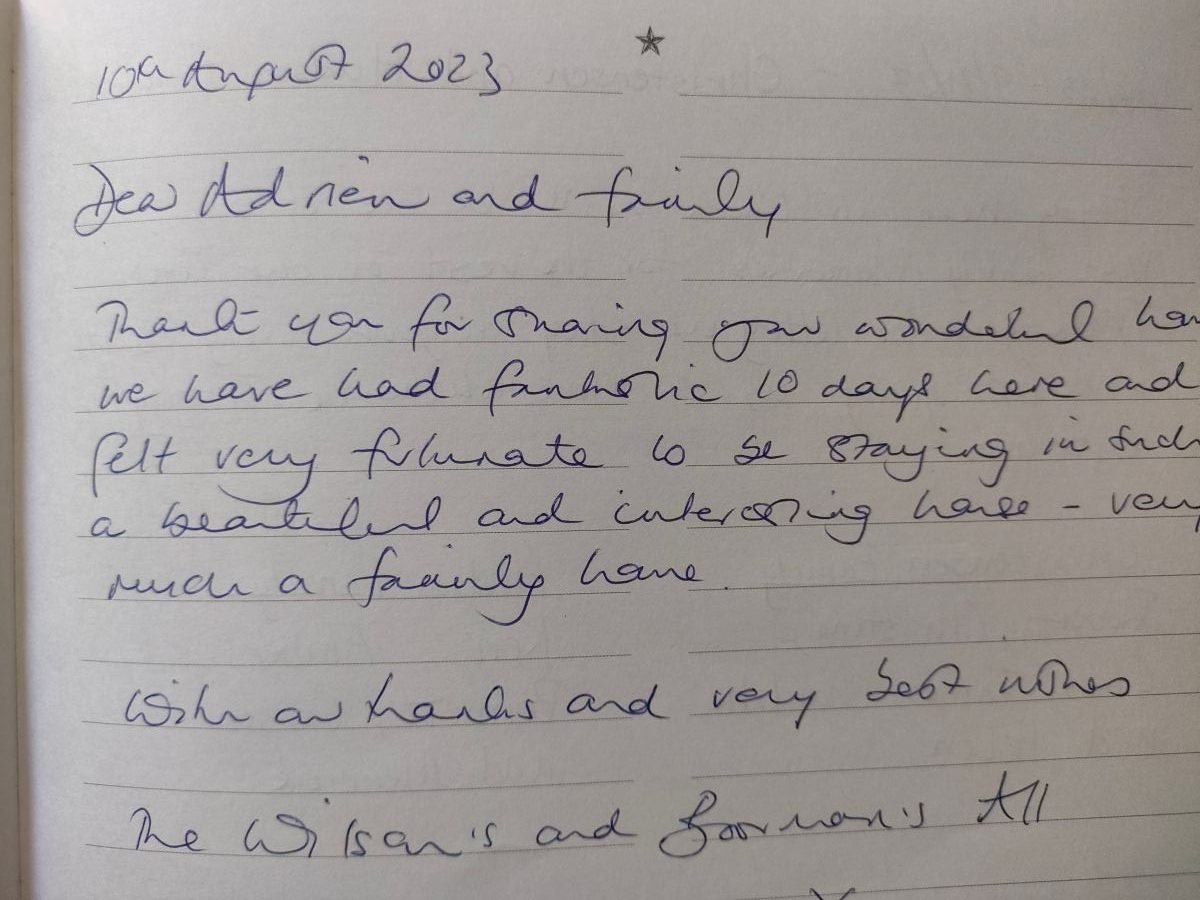 10th August 2023
Dear Adrien and family
Thank you for sharing your wonderful hom
we have had fantastic 10 days here and
felt very fortunate to be staying in such
a beautiful and interesting house - very
much a family home.
With our thanks and very best wishes
The Wilson's and Boorman's All